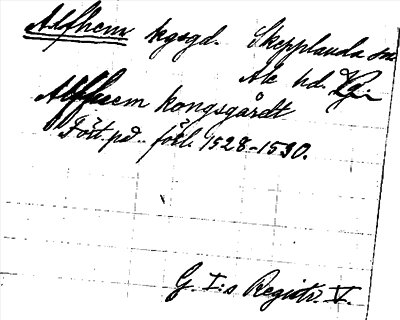 Alfhem kgsgd. Skepplanda sn
Ale hd. Vg.
Alffhem kongsgårdt
Fört. på förl. 1528-1530.
G. I:s Registr. V.